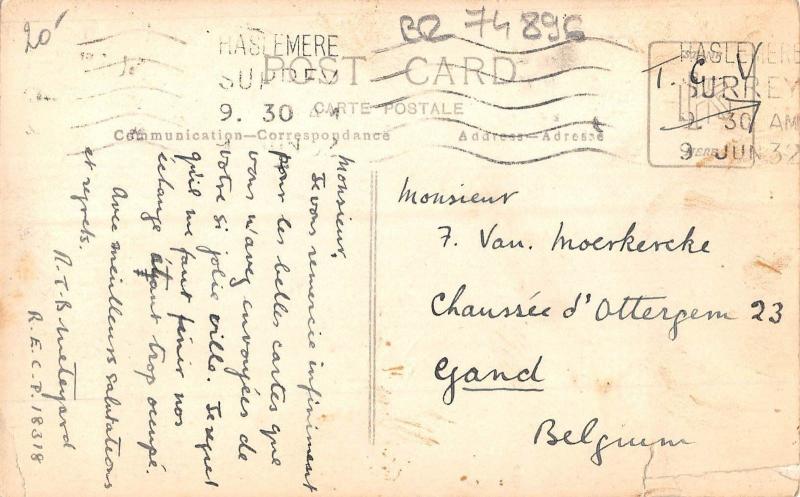 20
BR 74896
HASLEMERE
SURREY
9. 30 AM
POST CARD
CARTE POSTALE
Communication—Correspondance
Address—Adresse
T. C. V
HASLEMERE
SURREY
9. 30 AM
9 JUN 32
HERE
Monsieur,
Je vous remercie infiniment
pour les belles cartes que
vous m'avez envoyées de
votre si jolie ville. Je regret
qu'il me faut finir nos
échange étant trop occupé.
Avec meilleurs salutations
et regrets.
R.E.C.P. 18318
Monsieur
F. Van. Moerkercke
Chaussée d'Ottergem 23
Gand
Belgium